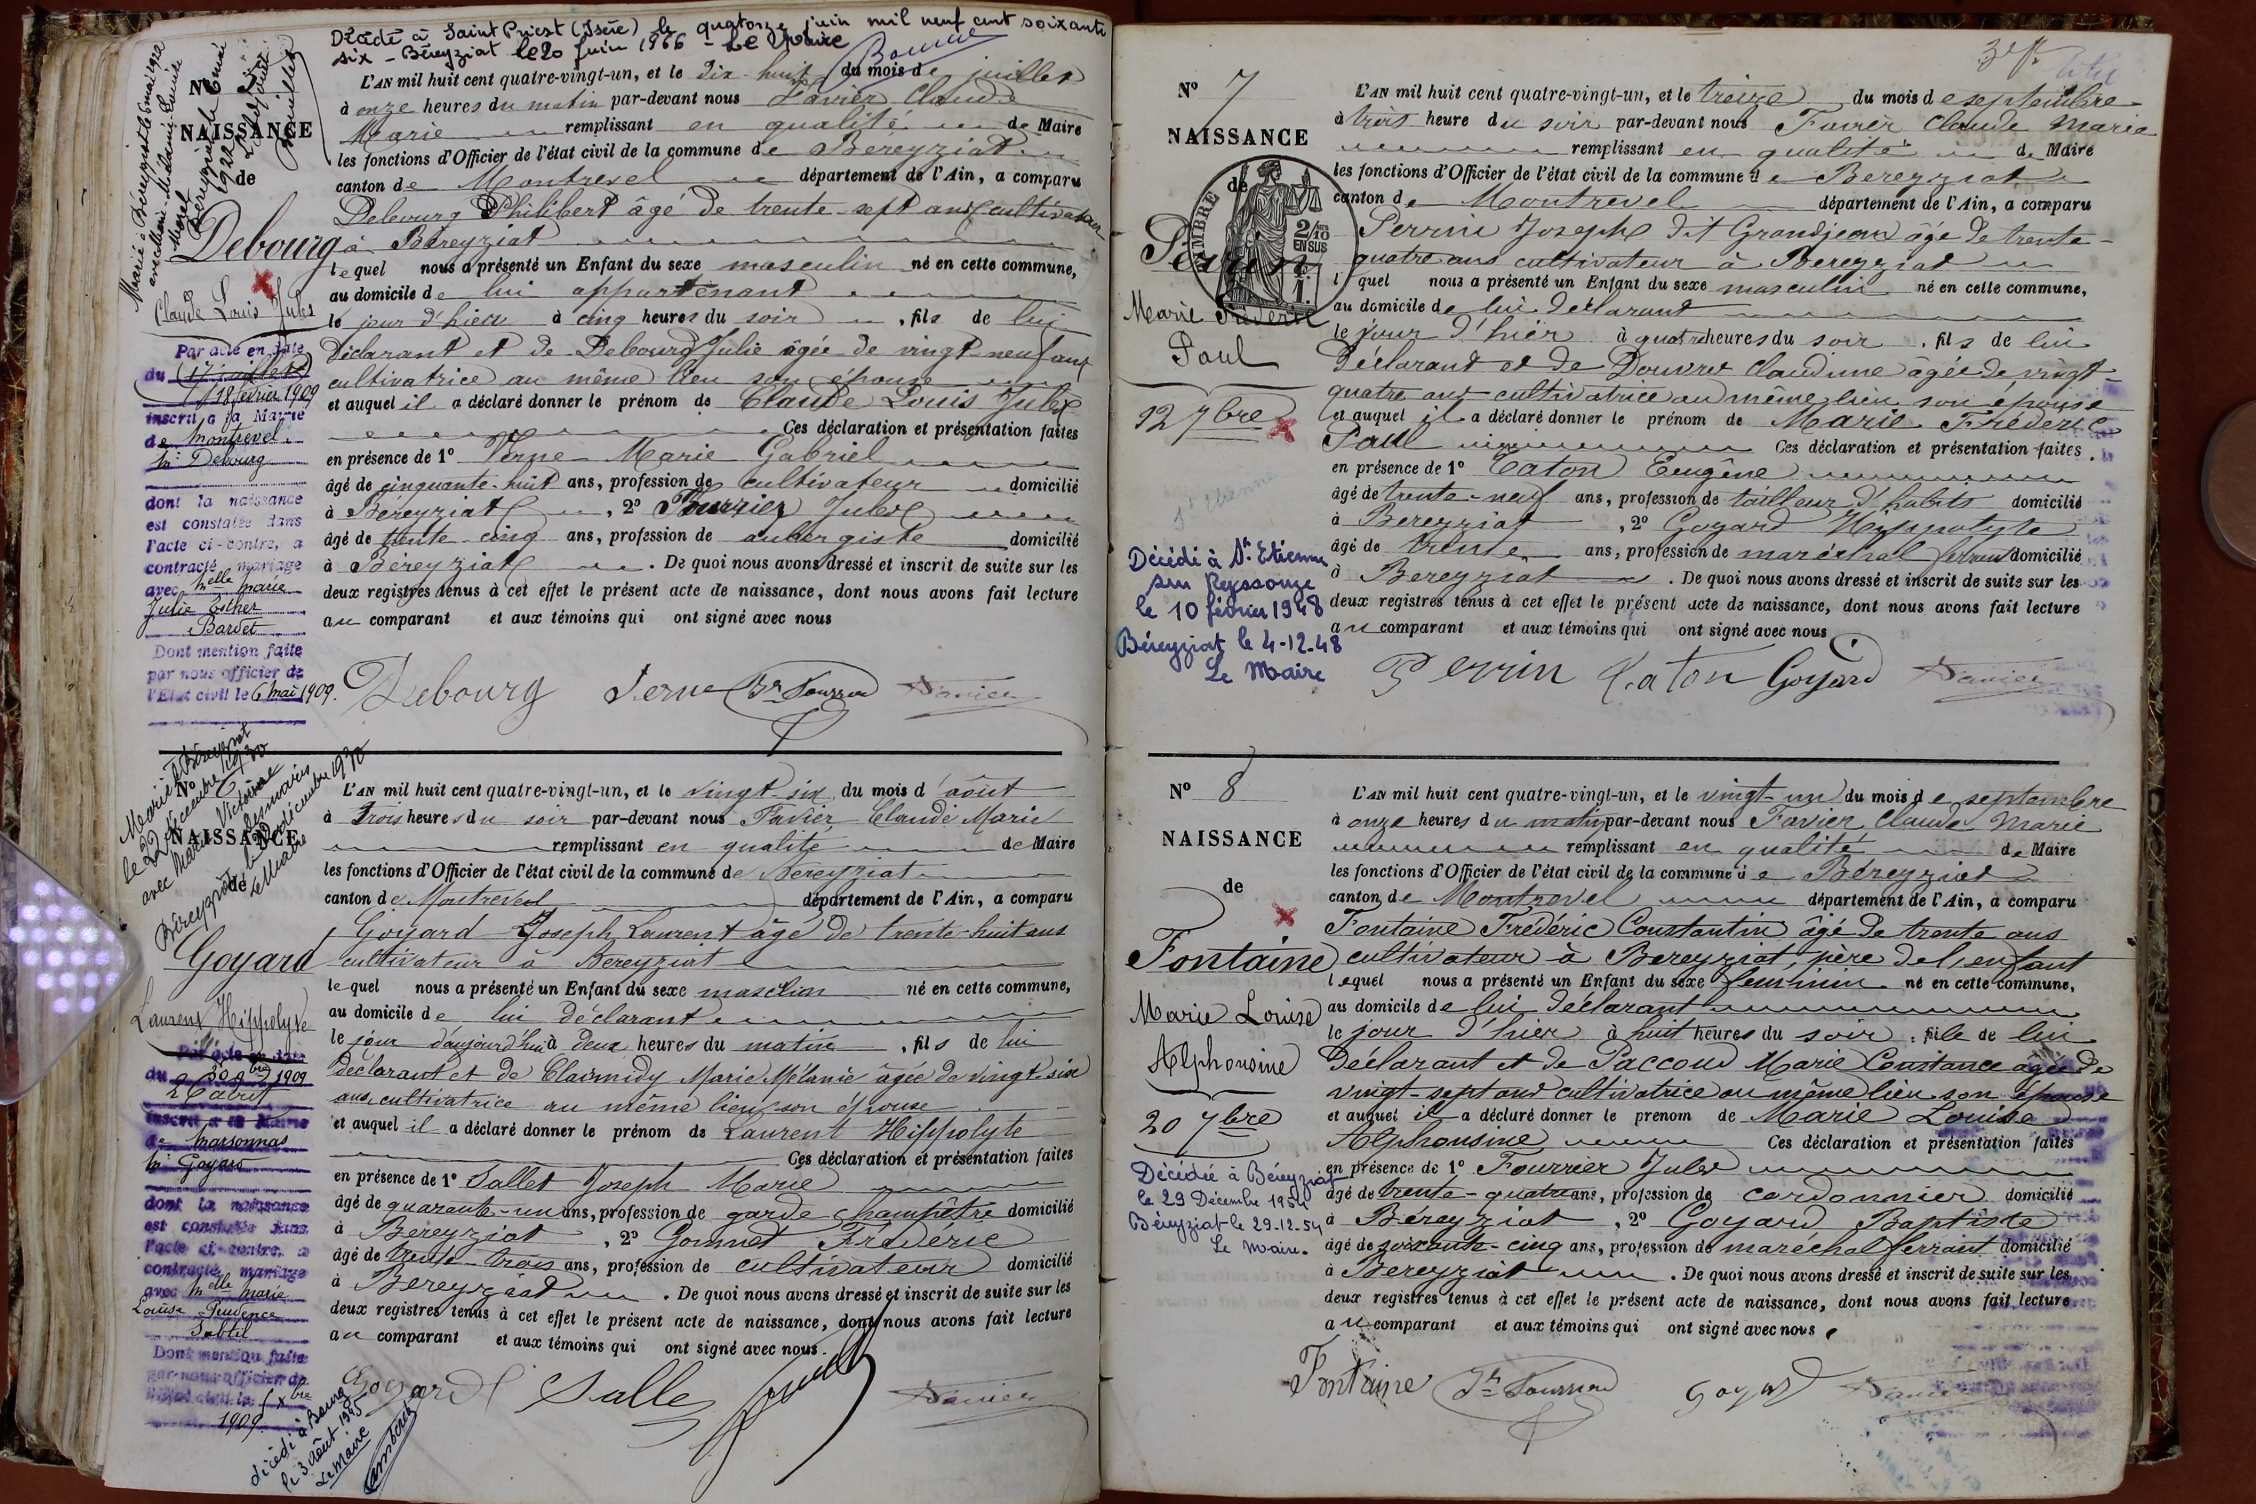 Décédé à Saint Priest (Isère) le quatorze juin mil neuf cent soixante
six - Béreyziat le 20 juin 1966 - Le Maire
L'AN mil huit cent quatre-vingt-un, et le dix-huit du mois de juillet
à onze heures du matin par-devant nous Favier Claude
Marie remplissant en qualité de Maire
les fonctions d'Officier de l'état civil de la commune de Bereyziat
canton de Montrevel département de l'Ain, a comparu
Debourg Philibert âgé de trente-sept ans cultivateur
à Béreyziat
lequel nous a présenté un Enfant du sexe masculin né en cette commune,
au domicile de lui appartenant
le jour d'hier à cinq heures du soir, fils de lui
déclarant et de Debourg Julie âgée de vingt-neuf ans
cultivatrice au même lieu son épouse
et auquel il a déclaré donner le prénom de Claude Louis Jules
Ces déclaration et présentation faites
en présence de 1° Verne Marie Gabriel
âgé de cinquante-huit ans, profession de cultivateur domicilié
à Béreyziat, 2° Fourrier Jules
âgé de trente-cinq ans, profession de aubergiste domicilié
à Béreyziat. De quoi nous avons dressé et inscrit de suite sur les
deux registres tenus à cet effet le présent acte de naissance, dont nous avons fait lecture
au comparant et aux témoins qui ont signé avec nous
Debourg Verne Favier
N°
NAISSANCE
de
Debourg
Claude Louis Jules
Par acte en date
du 17 juillet
18 février 1909
inscrit à la Mairie
de Montrevel
Mr Debourg
dont la naissance
est constatée dans
l'acte ci-contre, a
contracté mariage
avec Melle Marie
Julie Esther
Bardet
Dont mention faite
par nous officier de
l'Etat civil le 6 mai 1909.
Marié à Béreyziat le 22 décembre 1930
avec Marie Victorine Desmaris
Le Maire
N° 6
NAISSANCE
de
Goyard
Laurent Hippolyte
L'AN mil huit cent quatre-vingt-un, et le vingt-six du mois d'août
à trois heures du soir par-devant nous Favier Claude Marie
remplissant en qualité de Maire
les fonctions d'Officier de l'état civil de la commune de Bereyziat
canton de Montrevel département de l'Ain, a comparu
Goyard Joseph Laurent âgé de trente-huit ans
cultivateur à Bereyziat
lequel nous a présenté un Enfant du sexe masclian né en cette commune,
au domicile de lui déclarant
le jour d'aujourd'hui à deux heures du matin, fils de lui
déclarant et de Clairmidy Marie Mélanie âgée de vingt-six
ans, cultivatrice au même lieu son épouse
et auquel il a déclaré donner le prénom de Laurent Hippolyte
Ces déclaration et présentation faites
en présence de 1° Sallet Joseph Marie
âgé de quarante-un ans, profession de garde champêtre domicilié
à Bereyziat, 2° Gonnet Frédéric
âgé de trente-trois ans, profession de cultivateur domicilié
à Bereyziat. De quoi nous avons dressé et inscrit de suite sur les
deux registres tenus à cet effet le présent acte de naissance, dont nous avons fait lecture
au comparant et aux témoins qui ont signé avec nous.
Goyard Salle Favier
Par acte en date
du 1909
inscrit à la Mairie
de Marsonnas
Mr Goyard
dont la naissance
est constatée dans
l'acte ci-contre, a
contracté mariage
avec Melle Marie
Louise Prudence
Subtil
Dont mention faite
par nous officier de
l'Etat civil le
1909.
décédé à Bourg
le 3 août 1945
Le Maire
N° 7
NAISSANCE
de
Perrin
Marie Frédéric
Paul
12 7bre
TIMBRE
2/10
EN SUS
L'AN mil huit cent quatre-vingt-un, et le treize du mois de septembre
à trois heure du soir par-devant nous Favier Claude Marie
remplissant en qualité de Maire
les fonctions d'Officier de l'état civil de la commune de Bereyziat
canton de Montrevel département de l'Ain, a comparu
Perrin Joseph dit Grandjean âgé de trente-
quatre ans cultivateur à Bereyziat
lquel nous a présenté un Enfant du sexe masculin né en cette commune,
au domicile de lui déclarant
le jour d'hier à quatre heures du soir, fils de lui
déclarant et de Douvres Claudine âgée de vingt-
quatre ans cultivatrice au même lieu son épouse
et auquel il a déclaré donner le prénom de Marie Frédéric
Paul Ces déclaration et présentation faites
en présence de 1° Caton Eugène
âgé de trente-neuf ans, profession de tailleur d'habits domicilié
à Bereyziat, 2° Goyard Hippolyte
âgé de trente ans, profession de maréchal ferrant domicilié
à Bereyziat. De quoi nous avons dressé et inscrit de suite sur les
deux registres tenus à cet effet le présent acte de naissance, dont nous avons fait lecture
au comparant et aux témoins qui ont signé avec nous
Perrin Caton Goyard Favier
Décédé à St Etienne
sur Reyssouze
le 10 février 1948
Béreyziat le 4-12-48
Le Maire
N° 8
NAISSANCE
de
Fontaine
Marie Louise
Alphonsine
20 7bre
L'AN mil huit cent quatre-vingt-un, et le vingt-un du mois de septembre
à onze heures du matin par-devant nous Favier Claude Marie
remplissant en qualité de Maire
les fonctions d'Officier de l'état civil de la commune de Béreyziat
canton de Montrevel département de l'Ain, a comparu
Fontaine Frédéric Constantin âgé de trente ans
cultivateur à Bereyziat, père de l'enfant
lequel nous a présenté un Enfant du sexe féminin né en cette commune,
au domicile de lui déclarant
le jour d'hier à huit heures du soir, fille de lui
déclarant et de Paccoud Marie Constance âgée de
vingt-sept ans cultivatrice au même lieu son épouse
et auquel il a déclaré donner le prenom de Marie Louise
Alphonsine Ces déclaration et présentation faites
en présence de 1° Fourrier Jules
âgé de trente-quatre ans, profession de cordonnier domicilié
à Béreyziat, 2° Goyard Baptiste
âgé de soixante-cinq ans, profession de maréchal ferrant domicilié
à Bereyziat. De quoi nous avons dressé et inscrit de suite sur les
deux registres tenus à cet effet le présent acte de naissance, dont nous avons fait lecture
au comparant et aux témoins qui ont signé avec nous.
Fontaine Goyard Favier
Décédée à Béreyziat
le 29 Décembre 1954
Béreyziat le 29-12-54
Le Maire.